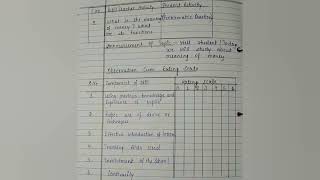 S.No. Pupil Teacher Activity Student Activity
2. What is the meaning of money? What are its functions Problematic Question
Announcement of Topic - Well student! Today we will study about meaning of money
Observation Cum Rating Scale
S.No Components of skill Rating Scale
0 1 2 3 4 5 6
1. Using previous knowledge and experience of pupils
2. Proper use of device or techniques
3. Effective introduction of lesson
4. Teaching Aids Used
5. Involvement of the Stud.
6. Continuity